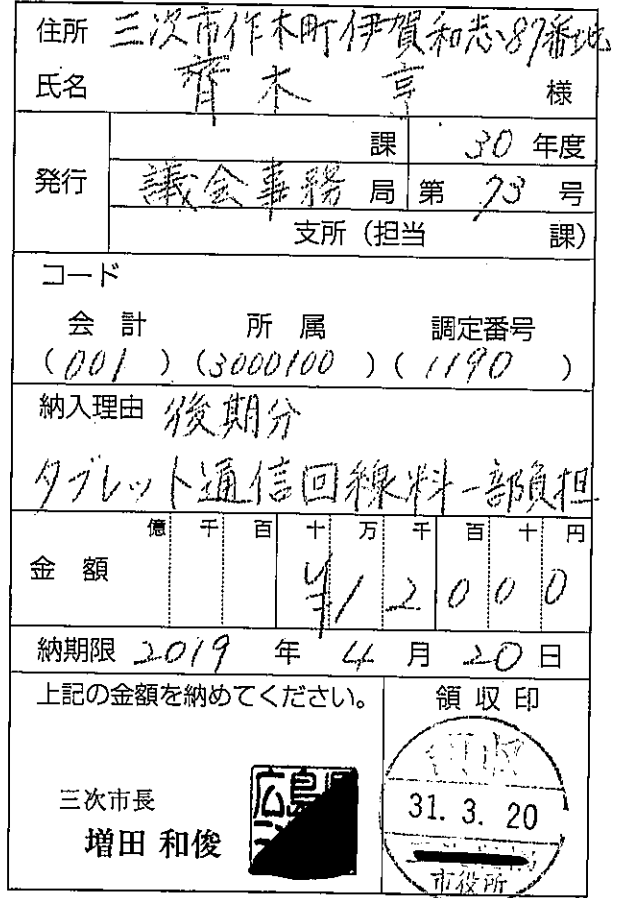 住所 三次市作木町伊賀和志87番地
氏名 齊木 亨 様
課 30 年度
発行 議会事務 局 第 73 号
支所 (担当 課)
コード
会計 所属 調定番号
(001) (3000100) (1190)
納入理由 後期分
タブレット通信回線料一部負担
億 千 百 十 万 千 百 十 円
金額 ¥12000
納期限 2019 年 4 月 20 日
上記の金額を納めてください。 領収印
三次市長
増田 和俊
広島県
領収
31. 3. 20
市役所